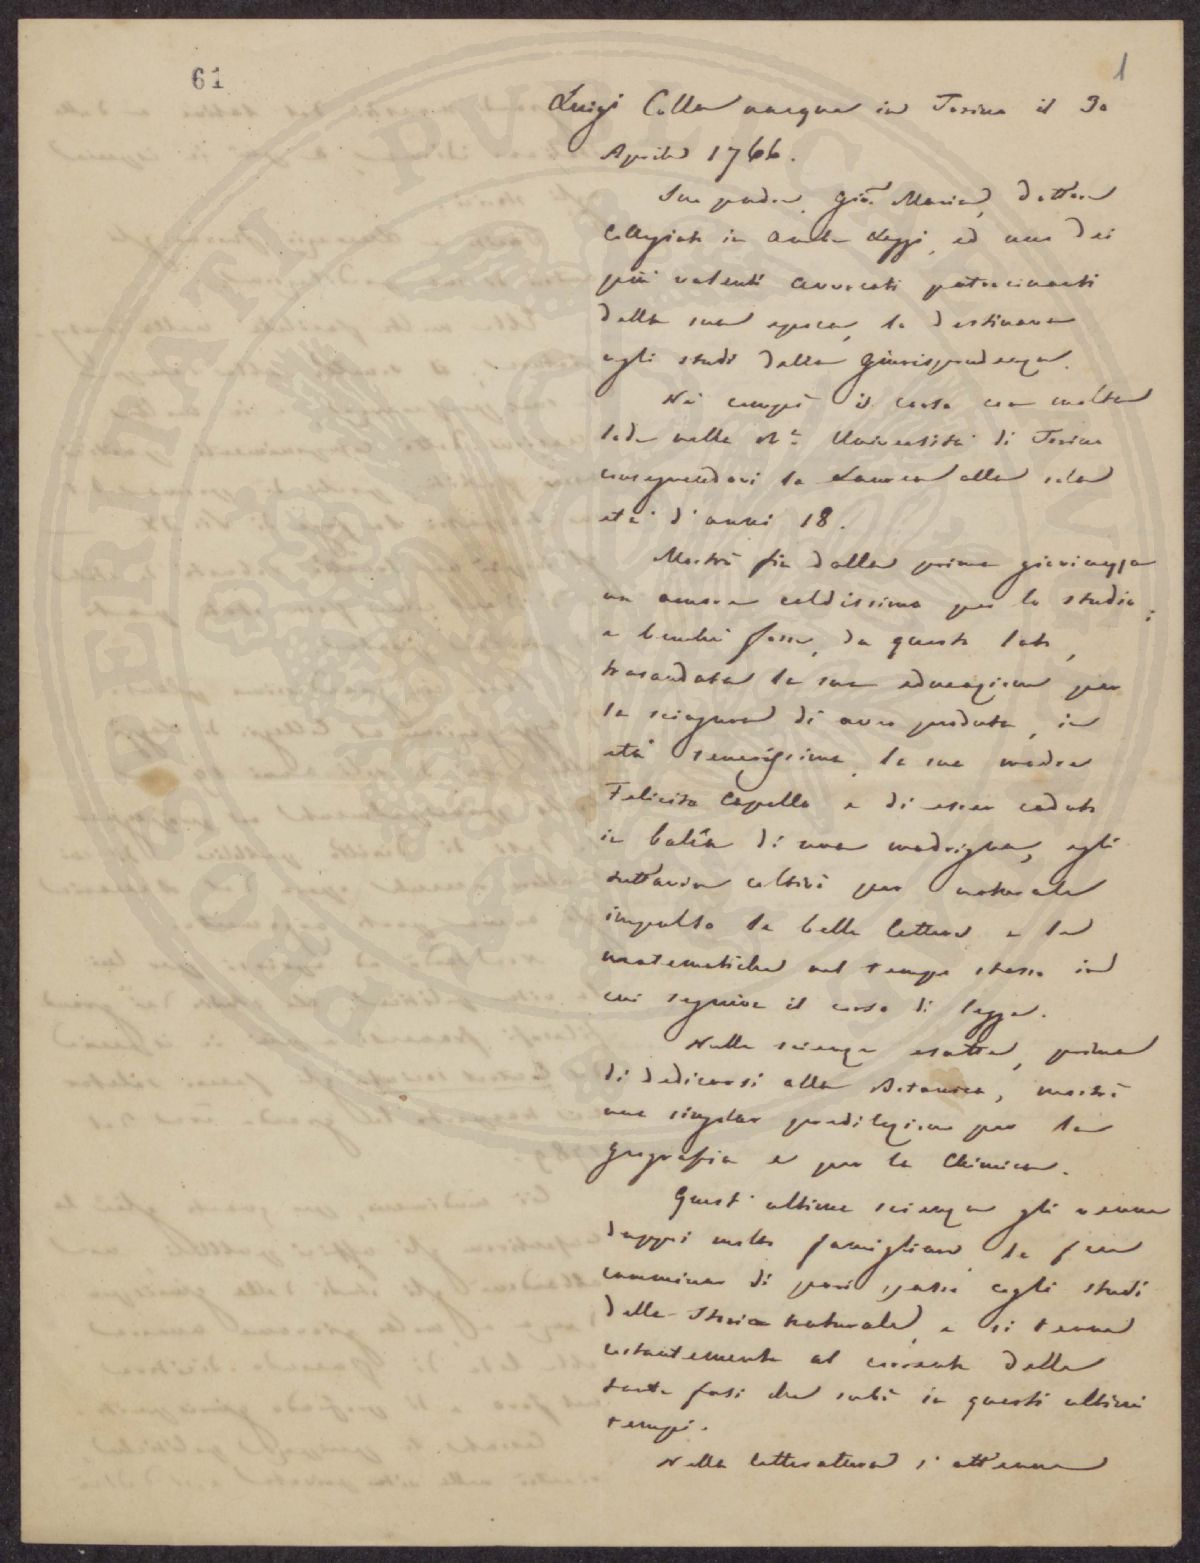 61
1
Luigi Colla nacque in Torino il 30
Aprile 1766.
Suo padre, Gio. Maria, dottore
Collegiato in Ambe Leggi, ed uno dei
più valenti avvocati patrocinanti
della sua epoca, lo destinava
agli studi della Giurisprudenza.
Nè compì il corso con molta
lode nella Ra. Università di Torino
conseguendovi la Laurea alla sola
età d'anni 18.
Mostrò fin dalla prima giovinezza
un amore caldissimo per lo studio;
e benchè fosse, da questo lato,
trasandata la sua educazione per
la sciagura di aver perduta, in
età tenerissima, la sua madre
Felicita Capello e di esser caduto
in balìa di una madrigna, egli
tuttavia coltivò per naturale
impulso le belle lettere e le
matematiche nel tempo stesso in
cui seguiva il corso di legge.
Nelle scienze esatte, prima
di dedicarsi alla Botanica, mostrò
una singolar predilezione per la
geografia e per la Chimica.
Quest' ultima scienza gli venne
dappoi molto famigliare, la fece
camminar di pari passo cogli studi
della Storia naturale, e si tenne
costantemente al corrente delle
tante fasi che subì in questi ultimi
tempi.
Nella letteratura s'attenne
PVBLICAE